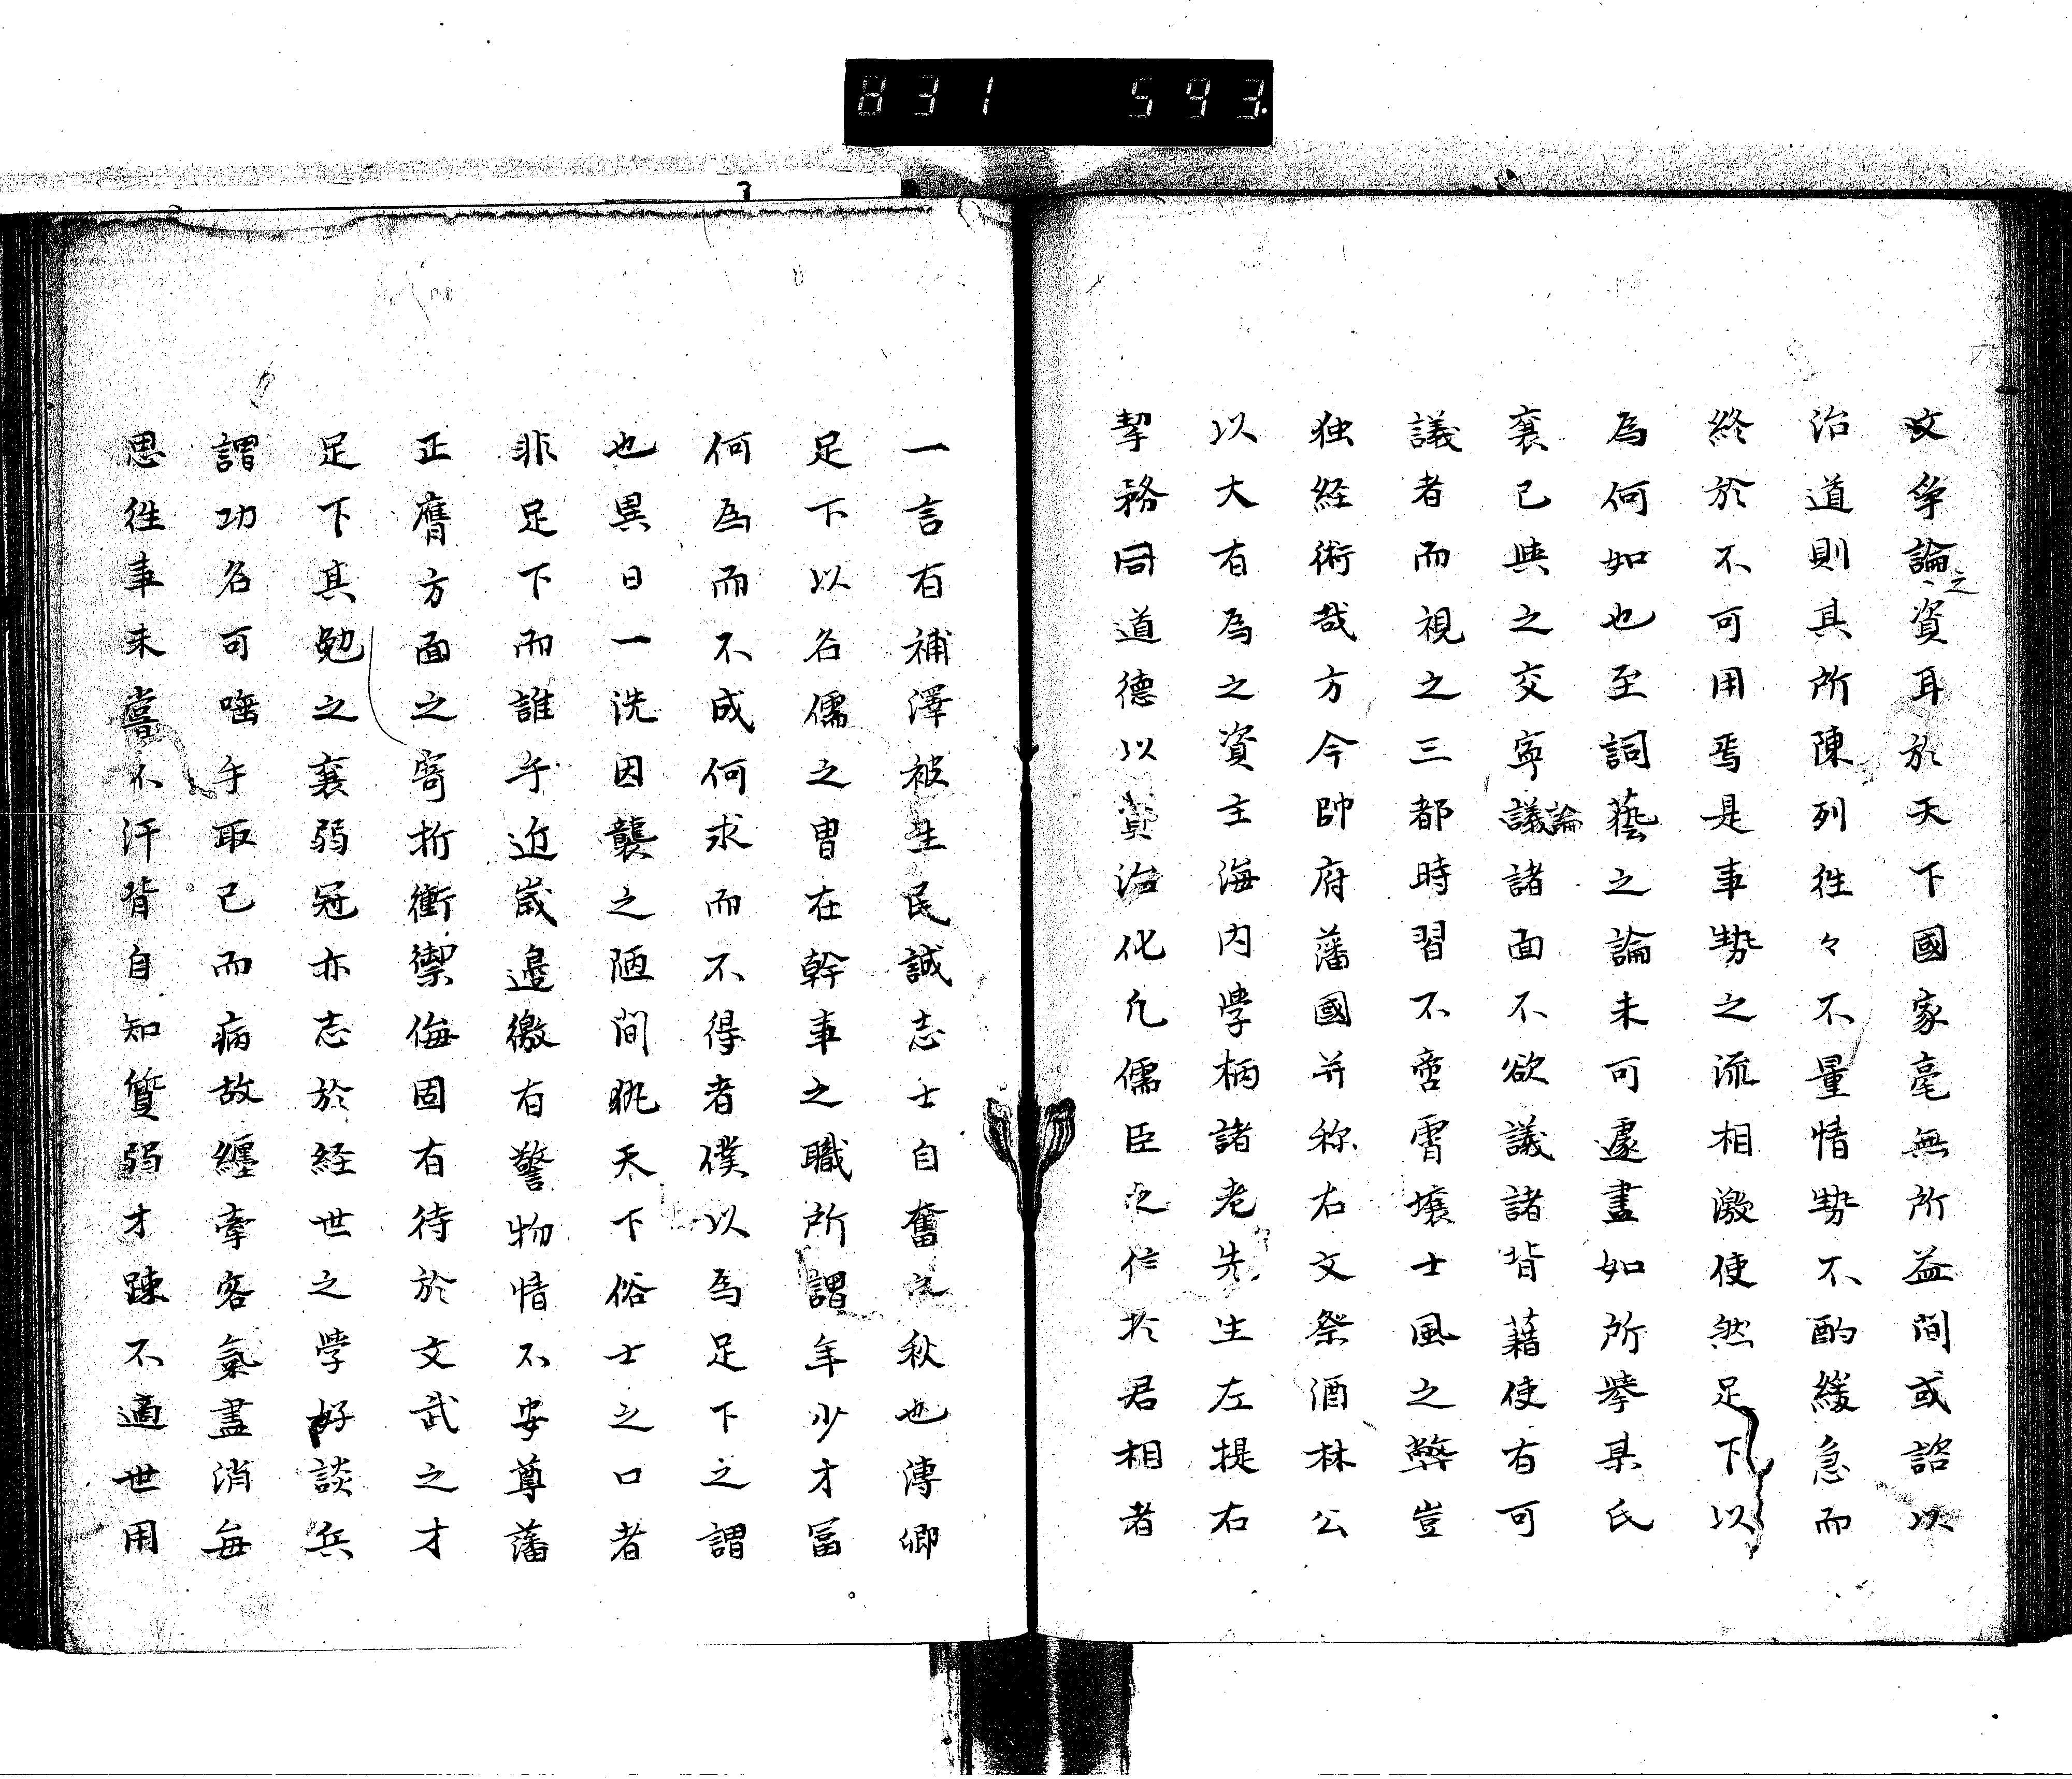 831 593.
文争論之資耳於天下國家毫無所益間或諮以
治道則其所陳列徃々不量情勢不酌緩急而
終於不可用焉是事勢之流相激使然足下以
為何如也至詞藝之論未可遽盡如所挙某氏
襄已與之交寧議論諸面不欲議諸背藉使有可
議者而視之三都時習不啻霄壌士風之弊豈
独経術哉方今帥府藩國并称右文祭酒林公
以大有為之資主海内学柄諸老先生左提右
挈務同道德以 治化凡儒臣之任於君相者
一言有補澤被生民誠志士自奮之秋也溥卿
足下以名儒之冑在幹事之職所謂年少才冨
何為而不成何求而不得者僕以為足下之謂
也異日一洗因襲之陋間執天下俗士之口者
非足下而誰乎近歳邉徼有警物情不安尊藩
正膺方面之寄折衝禦侮固有待於文武之才
足下其勉之襄弱冠亦志於経世之学好談兵
謂功名可唾手取已而病故纏牽客氣盡消毎
思徃事未嘗不汗背自知質弱才踈不適世用